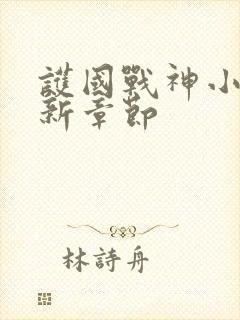 護國戰神小
新章節
林詩舟